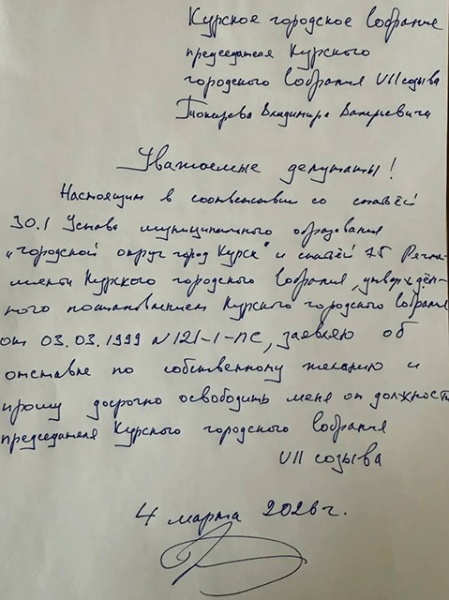 Курское городское Собрание
председателя Курского
городского Собрания VII созыва
Токарева Владимира Валерьевича
Уважаемые депутаты!
Настоящим в соответствии со статьёй
30.1 Устава муниципального образования
"городской округ город Курск" и статьёй 75 Регла-
мента Курского городского Собрания, утверждён-
ного постановлением Курского городского Собрания
от 03.03.1999 N 121-1-ПС, заявляю об
отставке по собственному желанию и
прошу досрочно освободить меня от должност
председателя Курского городского Собрания
VII созыва
4 марта 2026 г.